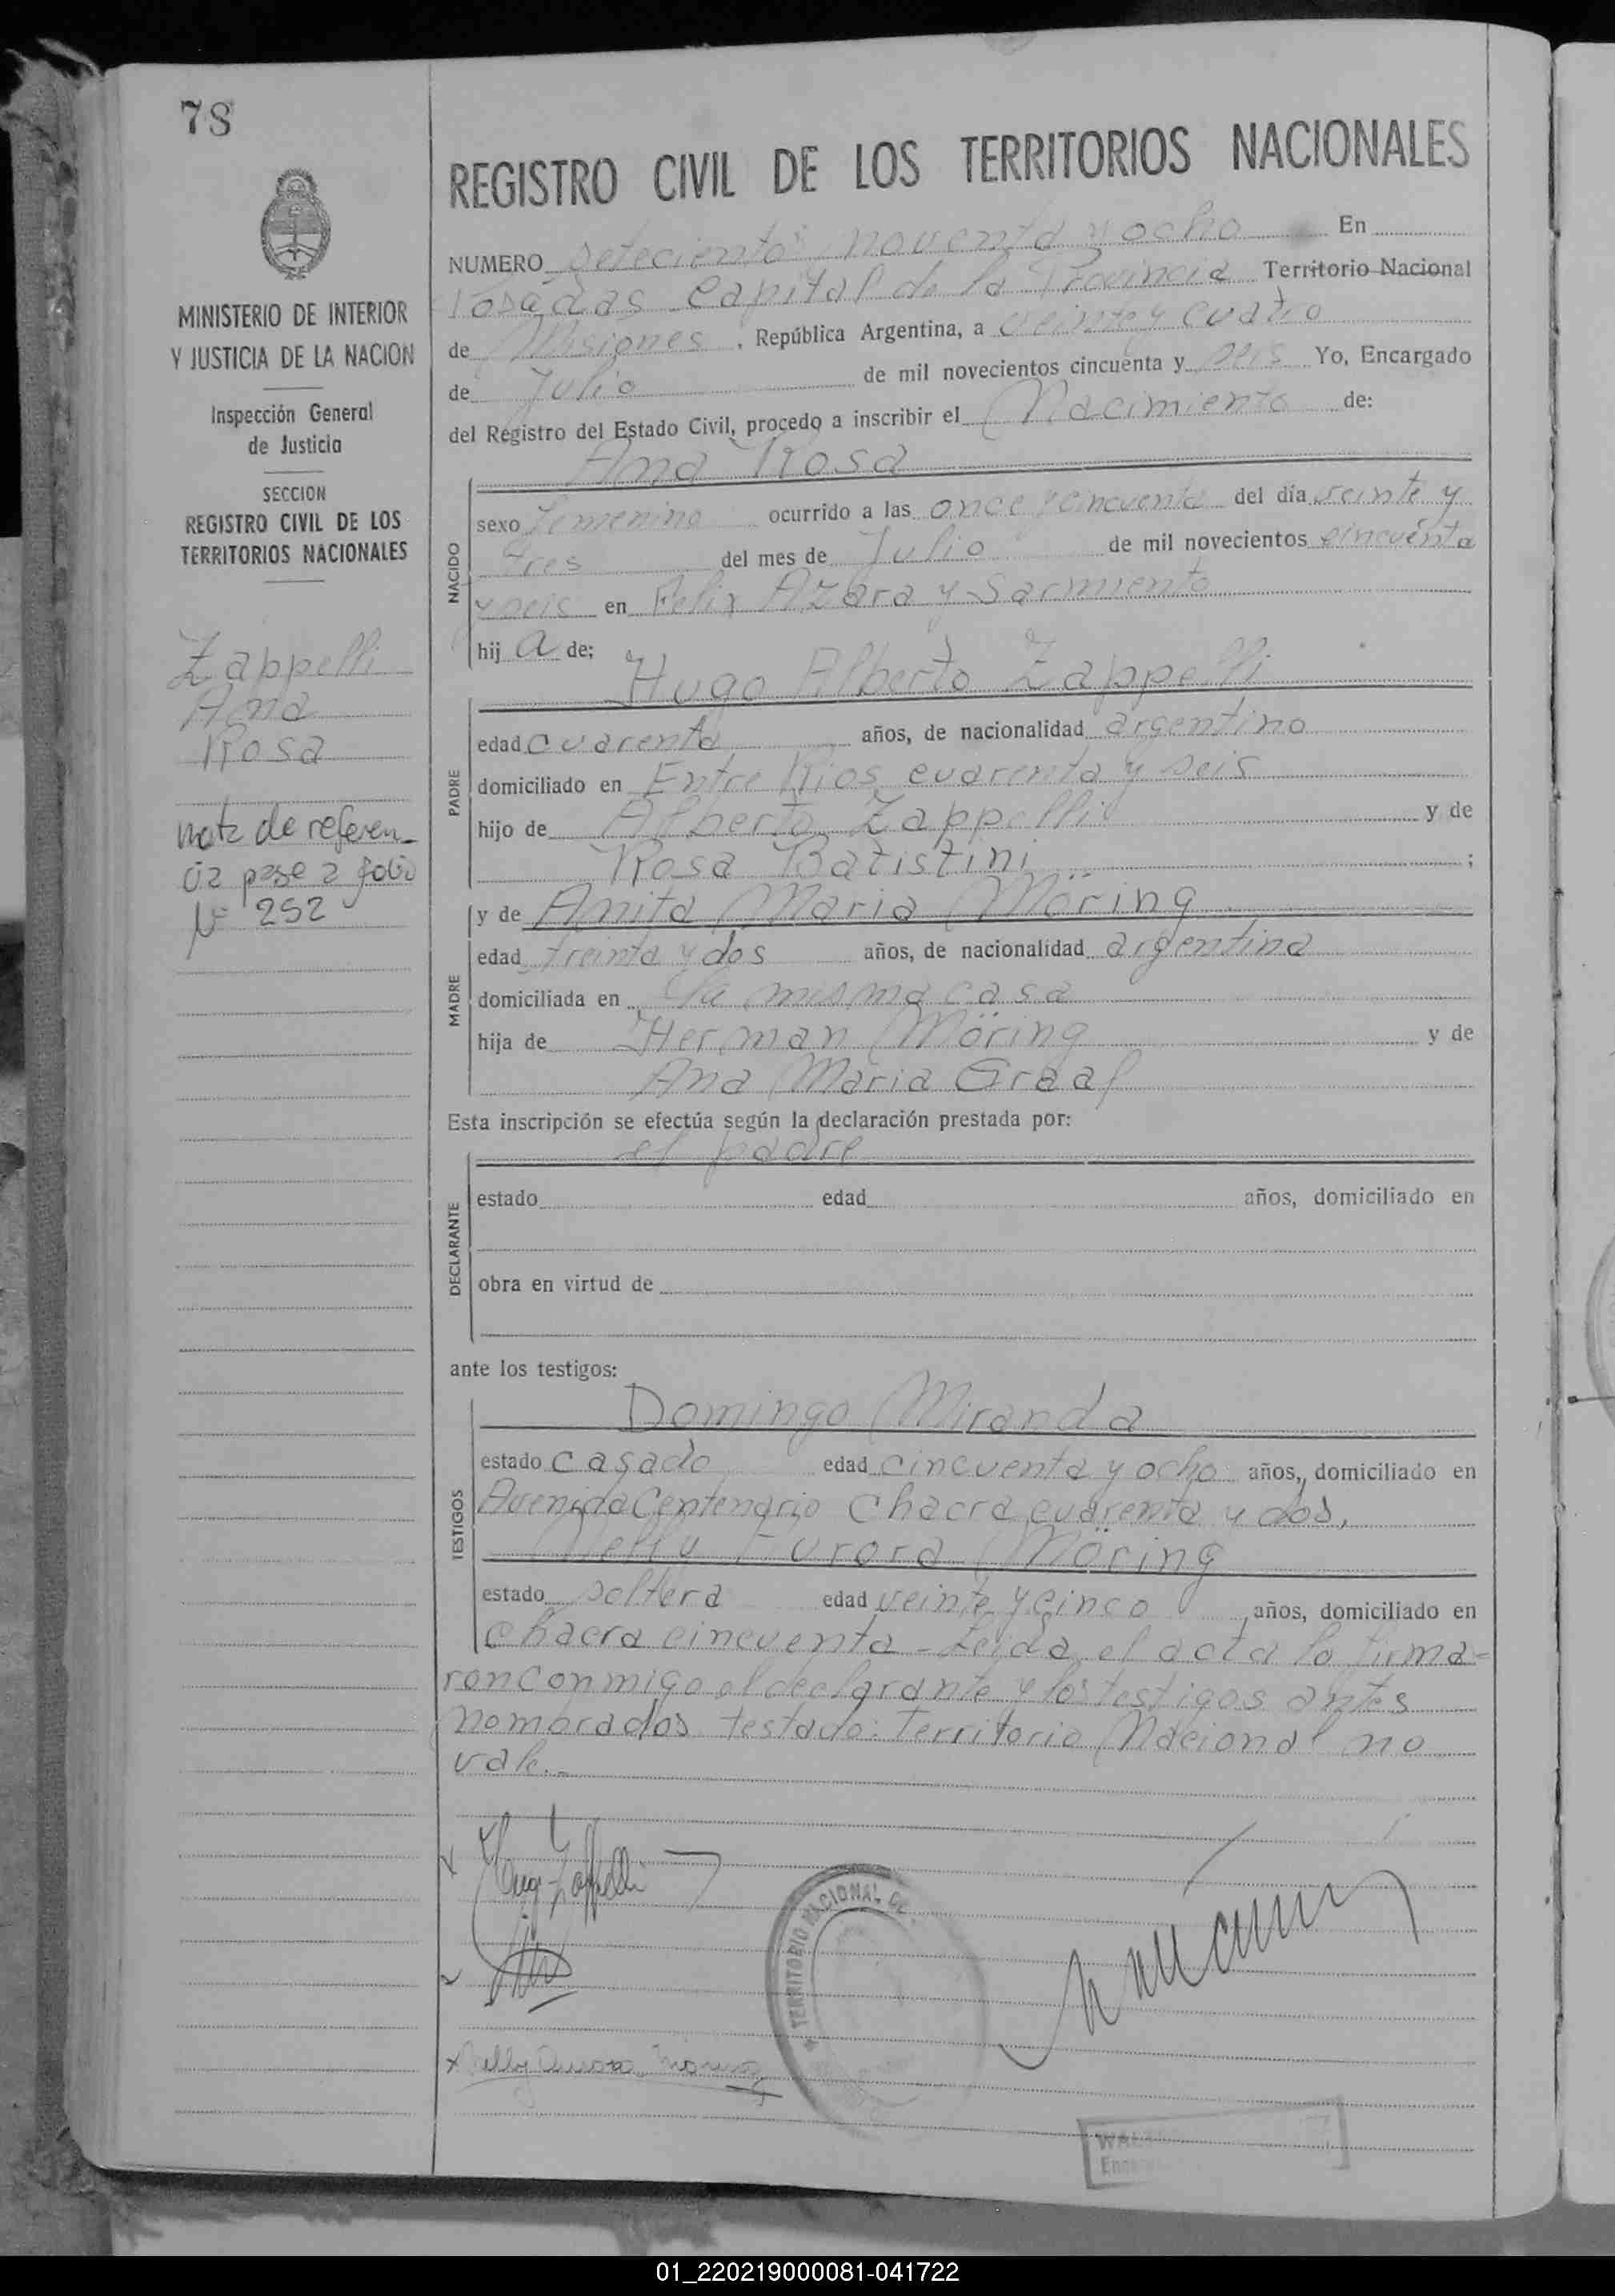 78
MINISTERIO DE INTERIOR
Y JUSTICIA DE LA NACION
Inspección General
de Justicia
SECCION
REGISTRO CIVIL DE LOS
TERRITORIOS NACIONALES
Zappelli
Ana
Rosa
nota de referen-
cia pase a folio
Nº 252
REGISTRO CIVIL DE LOS TERRITORIOS NACIONALES
NUMERO setecientos noventa y ocho En
Posadas Capital de la Provincia Territorio Nacional
de Misiones, República Argentina, a veinte y cuatro
de Julio de mil novecientos cincuenta y seis Yo, Encargado
del Registro del Estado Civil, procedo a inscribir el Nacimiento de:
Ana Rosa
NACIDO
sexo femenino ocurrido a las once y cincuenta del día veinte y
tres del mes de Julio de mil novecientos cincuenta
y seis en Felix Azara y Sarmiento
hij a de;
Hugo Alberto Zappelli
PADRE
edad cuarenta años, de nacionalidad argentino
domiciliado en Entre Rios cuarenta y seis
hijo de Alberto Zappelli y de
Rosa Batistini ;
y de Anita Maria Möring
MADRE
edad treinta y dos años, de nacionalidad argentina
domiciliada en la misma casa
hija de Herman Möring y de
Ana Maria Graaf
Esta inscripción se efectúa según la declaración prestada por:
el padre
DECLARANTE
estado edad años, domiciliado en
obra en virtud de
ante los testigos:
Domingo Miranda
TESTIGOS
estado casado edad cincuenta y ocho años, domiciliado en
Avenida Centenario Chacra cuarenta y dos,
Nelly Aurora Möring
estado soltera edad veinte y cinco años, domiciliado en
Chacra cincuenta - Leida el acta la firma-
ron conmigo el declarante y los testigos antes
nombrados testado: Territorio Nacional no
vale.-
Hugo Zappelli
TERRITORIO NACIONAL DE
Nelly Aurora Moring
WAL
Enc
01_220219000081-041722